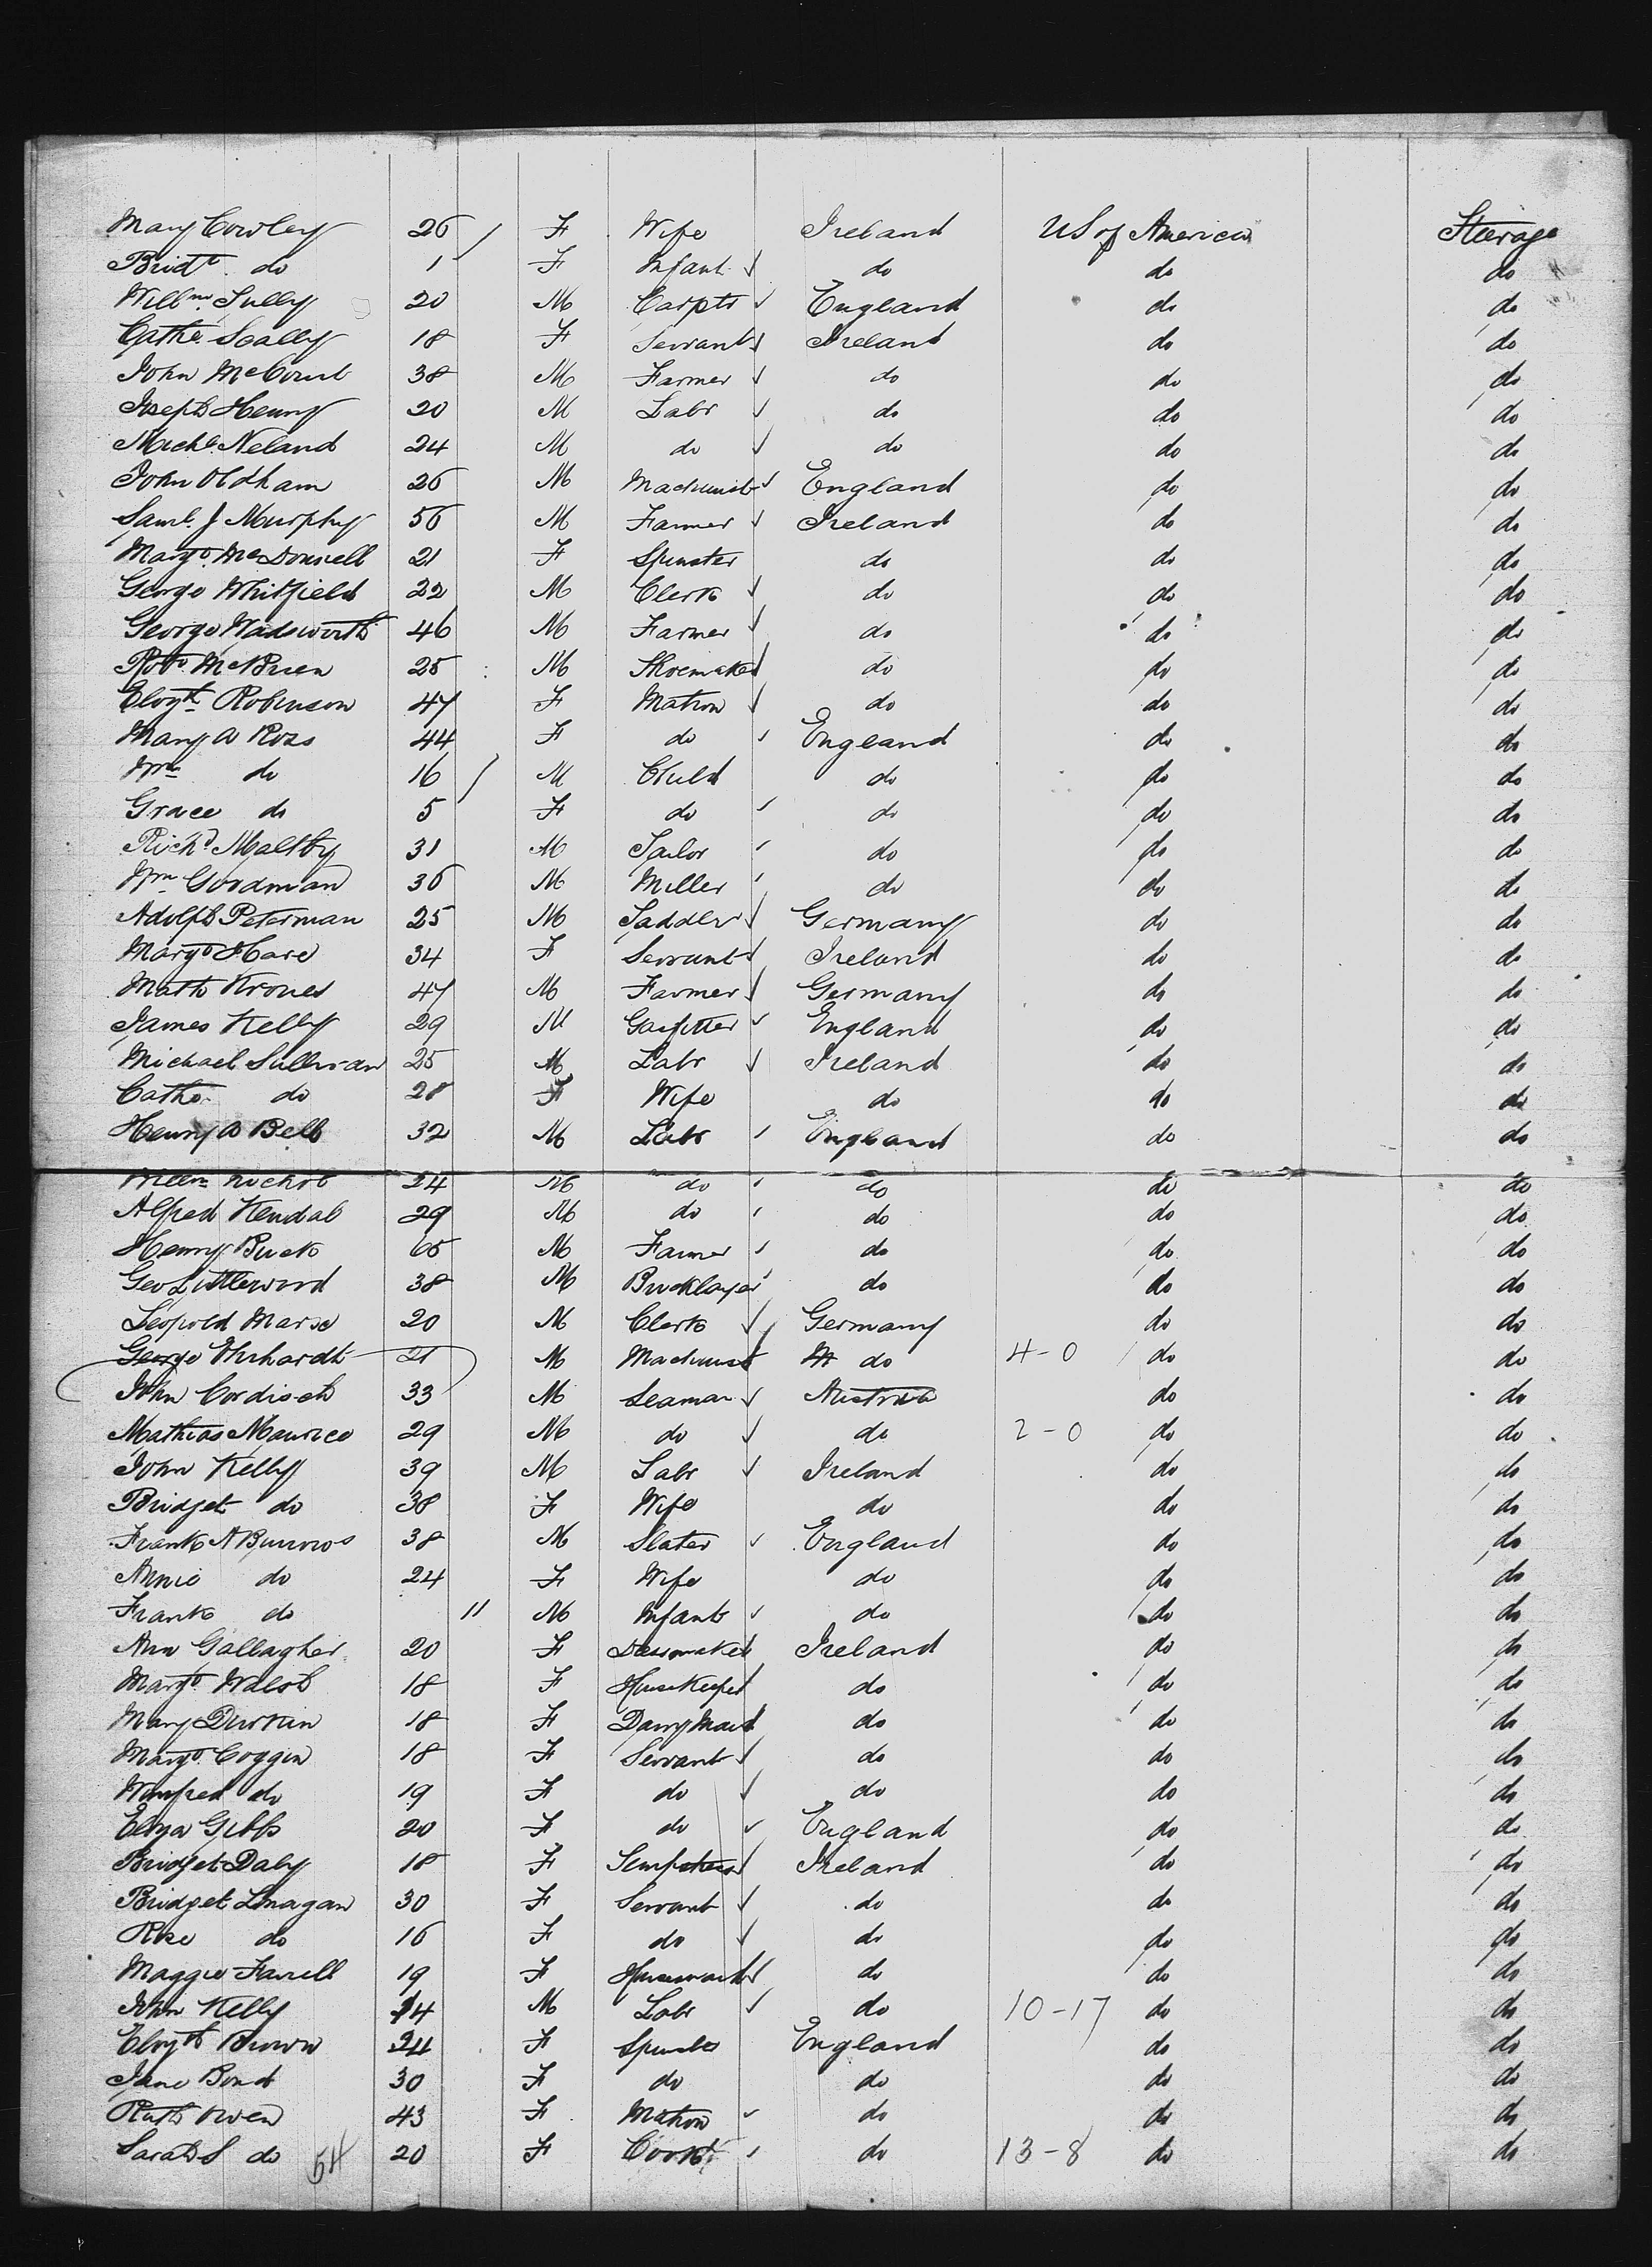 Mary Cowley 26 / F Wife Ireland US of America Steerage
Bridt. do 1 F Infant do do do
Willm. Sully 20 M Carptr England do do
Cathe. Scally 18 F Servant Ireland do do
John McCourt 38 M Farmer do do do
Joseph Henry 20 M Labr do do do
Michl. Neland 24 M do do do do
John Oldham 26 M Machinist England do do
Saml. J Murphy 56 M Farmer Ireland do do
Margt. McDonnell 21 F Spinster do do do
George Whitfield 22 M Clerk do do do
George Wadsworth 46 M Farmer do do do
Robt. McBrien 25 M Shoemaker do do do
Elizth. Robinson 47 F Matron do do do
Mary A Ross 44 F do England do do
Wm do 16 / M Child do do do
Grace do 5 F do do do do
Richd Maltby 31 M Tailor do do do
Wm Goodman 36 M Miller do do do
Adolph Peterman 25 M Saddler Germany do do
Margt Hare 34 F Servant Ireland do do
Math Krones 47 M Farmer Germany do do
James Kelly 29 M Gasfitter England do do
Michael Sullivan 25 M Labr Ireland do do
Cathe. do 28 F Wife do do do
Henry A Bell 32 M Labr England do do
Willm Nichol 24 M do do do do
Alfred Kendal 29 M do do do do
Henry Buck 65 M Farmer do do do
Geo Littlewood 38 M Bricklayer do do do
Leopold Marse 20 M Clerk Germany do do
George Ehrhardt 21 M Machinist do 4-0 do do
John Cordisch 33 M Seaman Austria do do
Mathias Maurice 29 M do do 2-0 do do
John Kelly 39 M Labr Ireland do do
Bridget do 38 F Wife do do do
Frank A Burrows 38 M Slater England do do
Annie do 24 F Wife do do do
Frank do 11 M Infant do do do
Ann Gallagher 20 F Dressmaker Ireland do do
Margt Walsh 18 F Housekeeper do do do
Mary Durkin 18 F Dairy Maid do do do
Margt. Coggin 18 F Servant do do do
Winifred do 19 F do do do do
Eliza Gibbs 20 F do England do do
Bridget Daly 18 F Sempstress Ireland do do
Bridget Linagan 30 F Servant do do do
Rose do 16 F do do do do
Maggie Farrell 19 F Housemaid do do do
John Kelly 14 M Labr do 10-17 do do
Elizth Brown 24 F Spinster England do do
Jane Bond 30 F do do do do
Ruth Owen 43 F Matron do do do
Sarah S do 54 20 F Cook do 13-8 do do